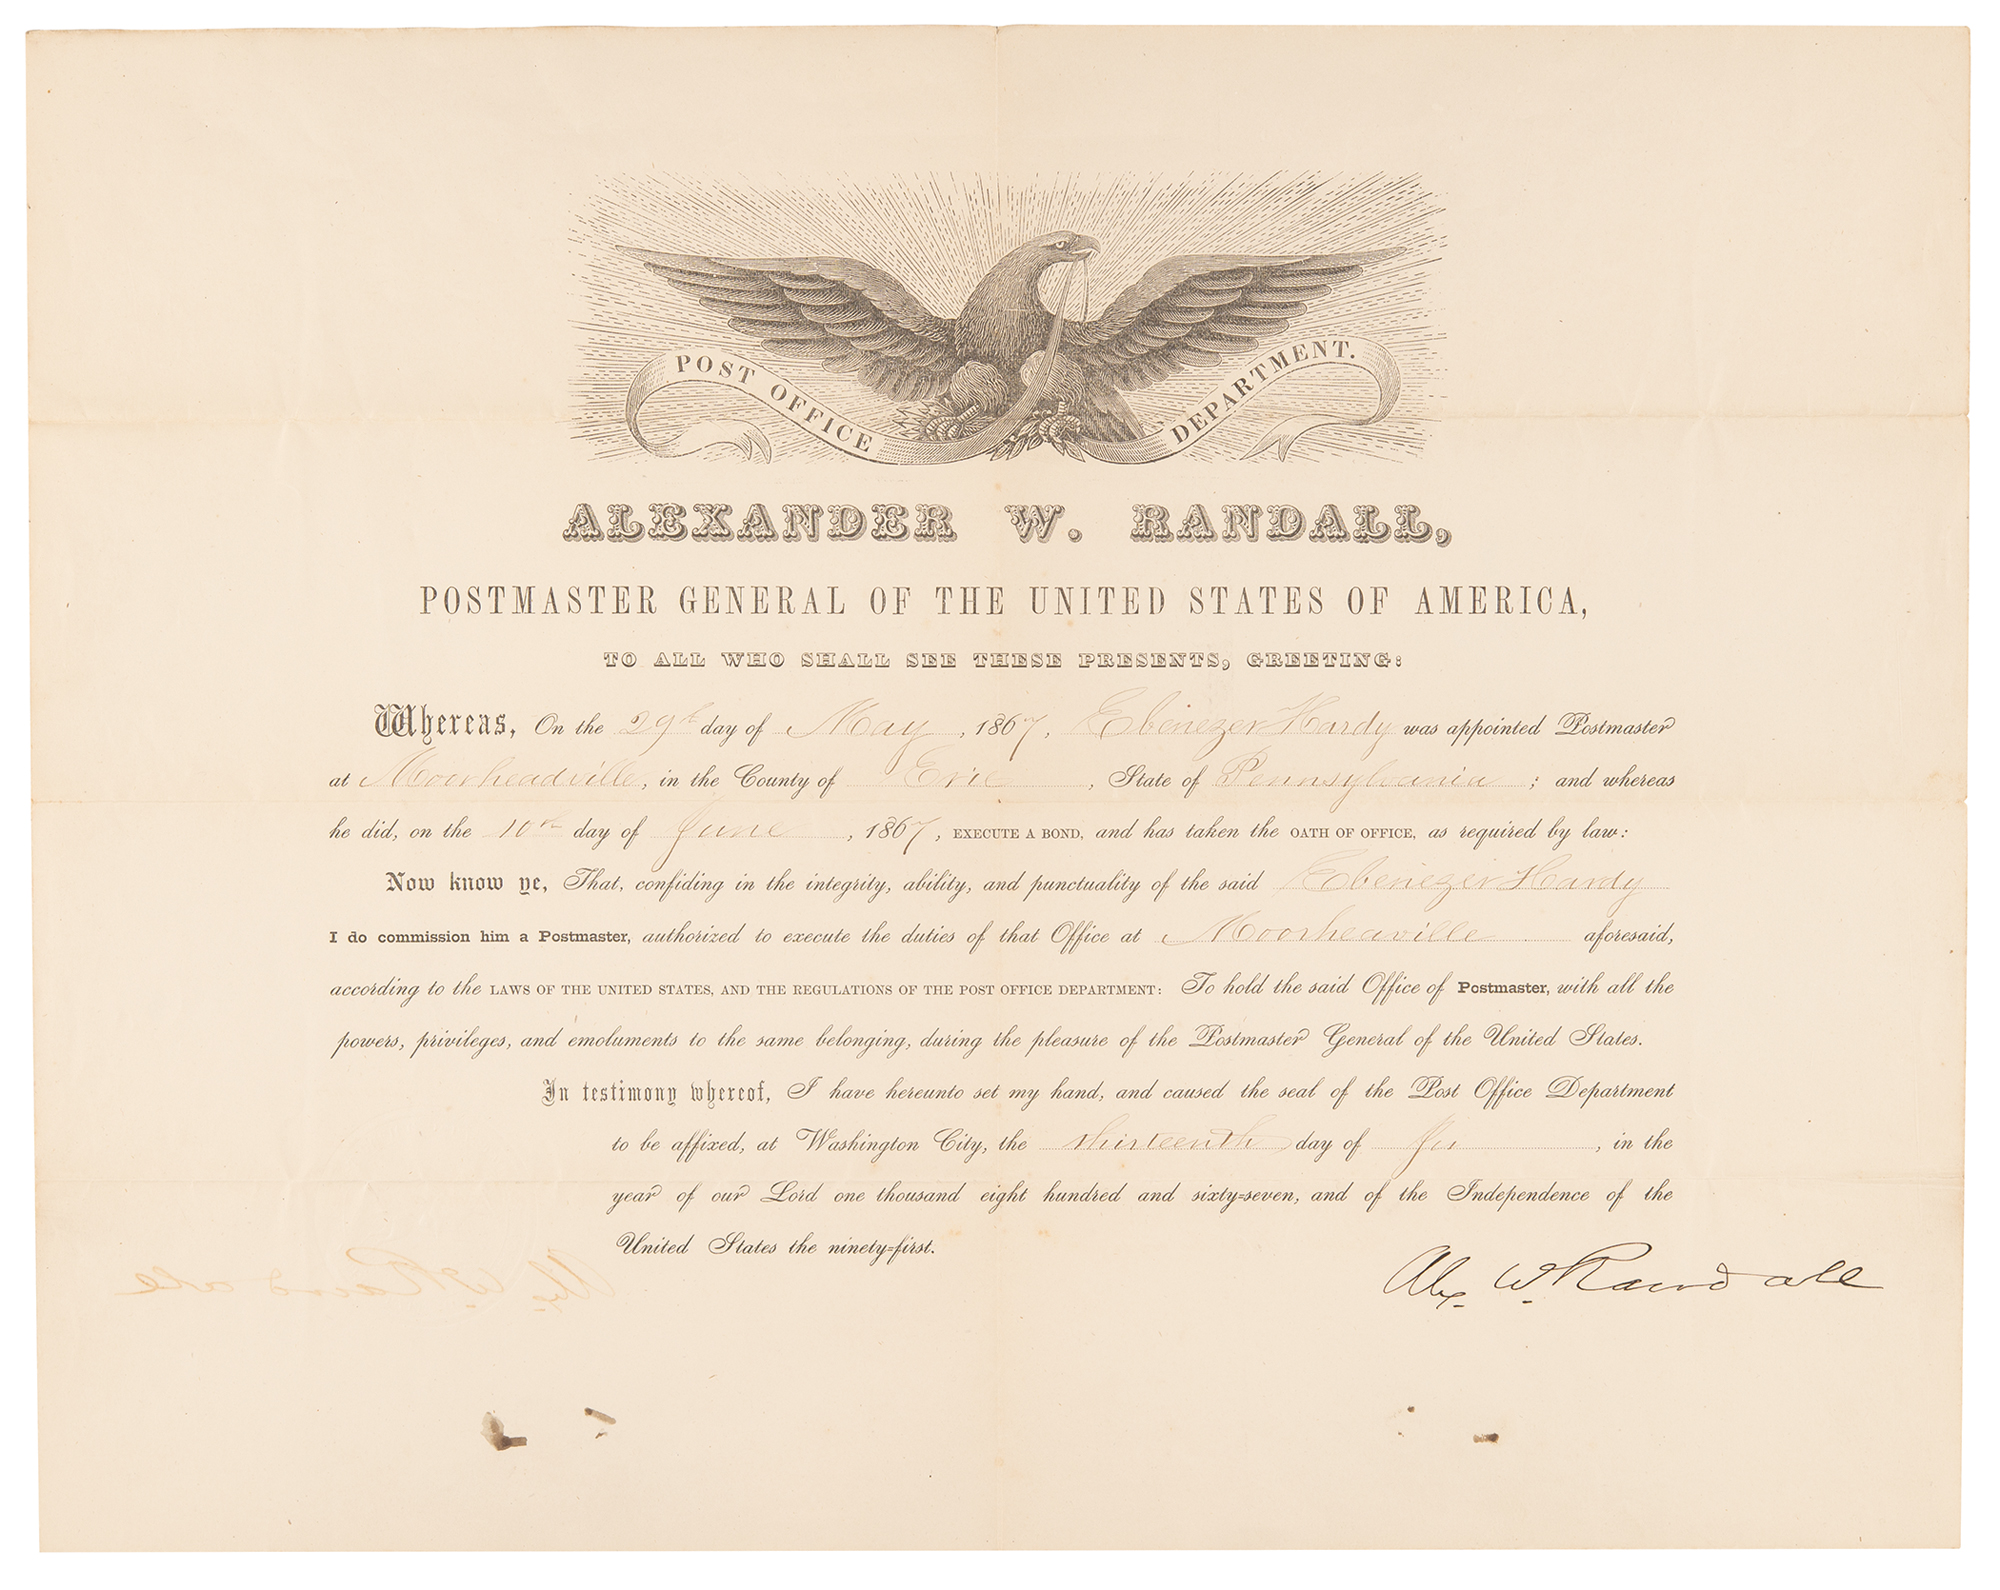 POST OFFICE DEPARTMENT.
ALEXANDER W. RANDALL,
POSTMASTER GENERAL OF THE UNITED STATES OF AMERICA,
TO ALL WHO SHALL SEE THESE PRESENTS, GREETING:
Whereas, On the 29th day of May, 1867, Ebenezer Hardy was appointed Postmaster
at Moorheadville, in the County of Erie, State of Pennsylvania; and whereas
he did, on the 10th day of June, 1867, EXECUTE A BOND, and has taken the OATH OF OFFICE, as required by law:
Now know ye, That, confiding in the integrity, ability, and punctuality of the said Ebenezer Hardy
I do commission him a Postmaster, authorized to execute the duties of that Office at Moorheaville aforesaid,
according to the LAWS OF THE UNITED STATES, AND THE REGULATIONS OF THE POST OFFICE DEPARTMENT: To hold the said Office of Postmaster, with all the
powers, privileges, and emoluments to the same belonging, during the pleasure of the Postmaster General of the United States.
In testimony whereof, I have hereunto set my hand, and caused the seal of the Post Office Department
to be affixed, at Washington City, the thirteenth day of Ju, in the
year of our Lord one thousand eight hundred and sixty-seven, and of the Independence of the
United States the ninety-first.
Alex. W. Randall